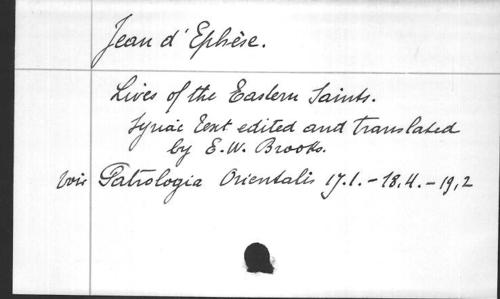 Jean d'Ephèse.
Lives of the Eastern Saints.
Syriac text edited and translated
by E.W. Brooks.
voir Patrologia Orientalis 17,1.-18,4.-19,2